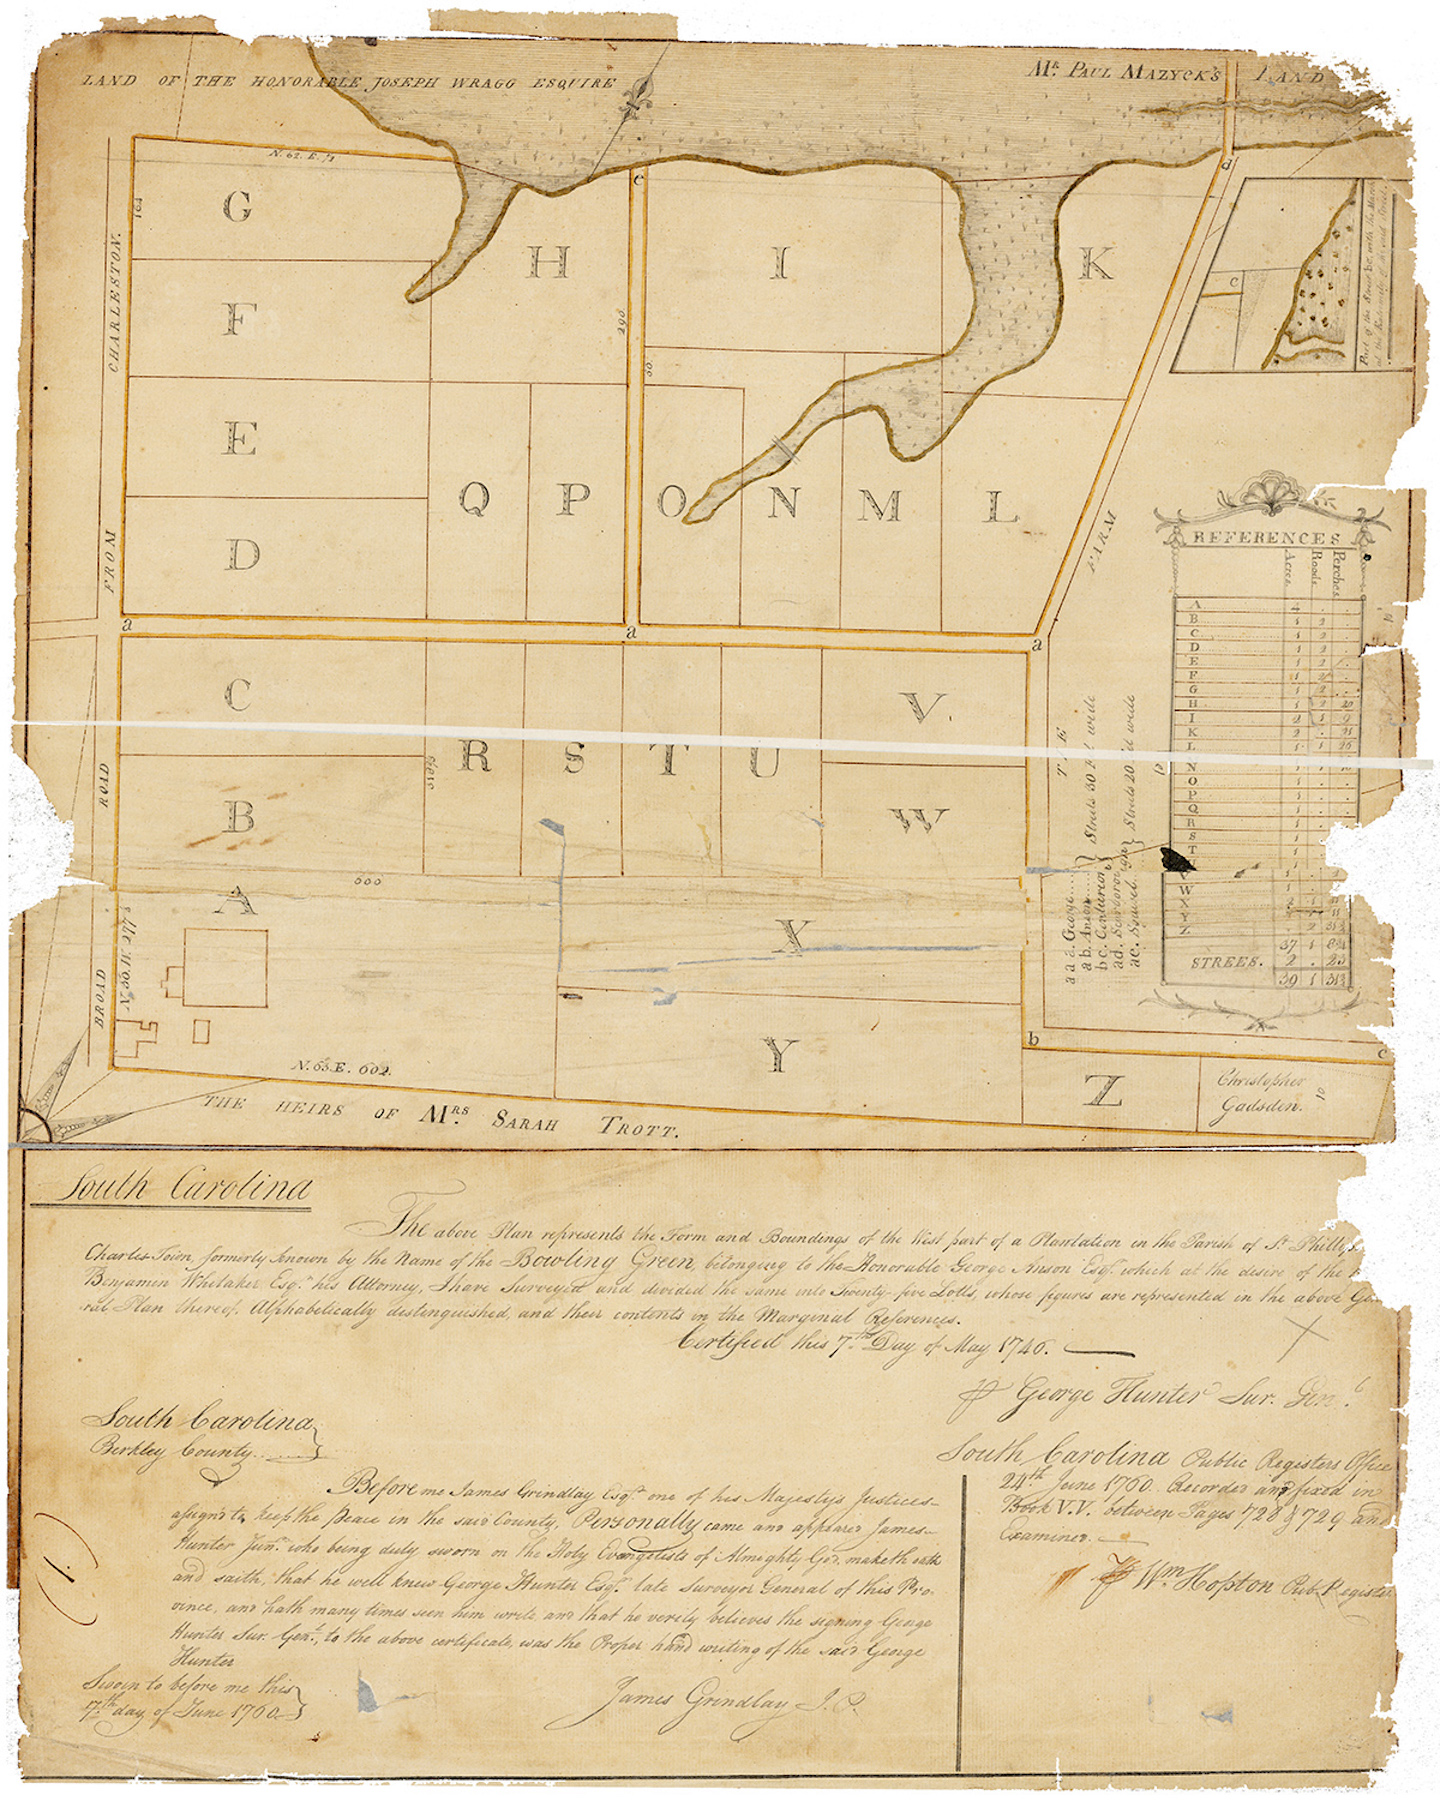 LAND OF THE HONORABLE JOSEPH WRAGG ESQUIRE
Mr. PAUL MAZYCK'S LAND
N. 62. E.
G
F
E
D
H
I
K
Q
P
O
N
M
L
e
d
c
298
CHARLESTON.
FROM
ROAD
BROAD
FARM
THE
a
a
a
C
B
A
R
S
T
U
V.
W
X
Y
Z
600
N. 63. E. 602.
b
c
Christopher
Gadsden.
THE HEIRS OF MRS. SARAH TROTT.
REFERENCES
Acres
Roods
Perches
A 4 . .
B 1 2 .
C 1 2 .
D 1 2 .
E 1 2
F 1 2
G 1 2 .
H 1 2 20
I 2 1 9
K 2 .
L 1 1 26
N 1
O 1 .
P 1 .
Q 1 .
R 1 .
S 1 .
T 1
W
Y
Z
37 1
STREES. 2 . 23
39 1
a a a. George
a b. Anson
b c. Centurion
} Streets 30 Ft. wide
ad. Scarborough
ae. Squirrel
} Streets 20 Ft. wide
South Carolina
The above Plan represents the Form and Boundings of the West part of a Plantation in the Parish of St. Phillip
Charles-Town, formerly known by the Name of the Bowling Green, belonging to the Honorable George Anson Esqr. which at the desire of the
Benjamin Whitaker Esqr. his Attorney, I have Surveyed and divided the same into Twenty-five Lotts, whose figures are represented in the above Ge
ral Plan thereof. Alphabetically distinguished, and their contents in the Marginal References.
Certified this 7th Day of May 1746.
George Hunter Sur. Genl.
South Carolina
Berkley County.
Before me James Grindlay Esqr. one of his Majestys Justices
assign'd to keep the Peace in the said County, Personally came and appeared James
Hunter Junr. who being duly sworn on the Holy Evangelists of Almighty God, maketh oath
and saith, that he well knew George Hunter Esqr. late Surveyor General of this Pro-
vince, and hath many times seen him write and that he verily believes the signing George
Hunter Sur. Genl., to the above certificate, was the Proper hand writing of the said George
Hunter
Sworn to before me this
7th day of June 1760
James Grindlay J. P.
South Carolina Public Registers Office
24th June 1760. Recorded and fixed in
Book V.V. between Pages 728 & 729 and
Examined.
Wm. Hopton Pub. Register
(1.)